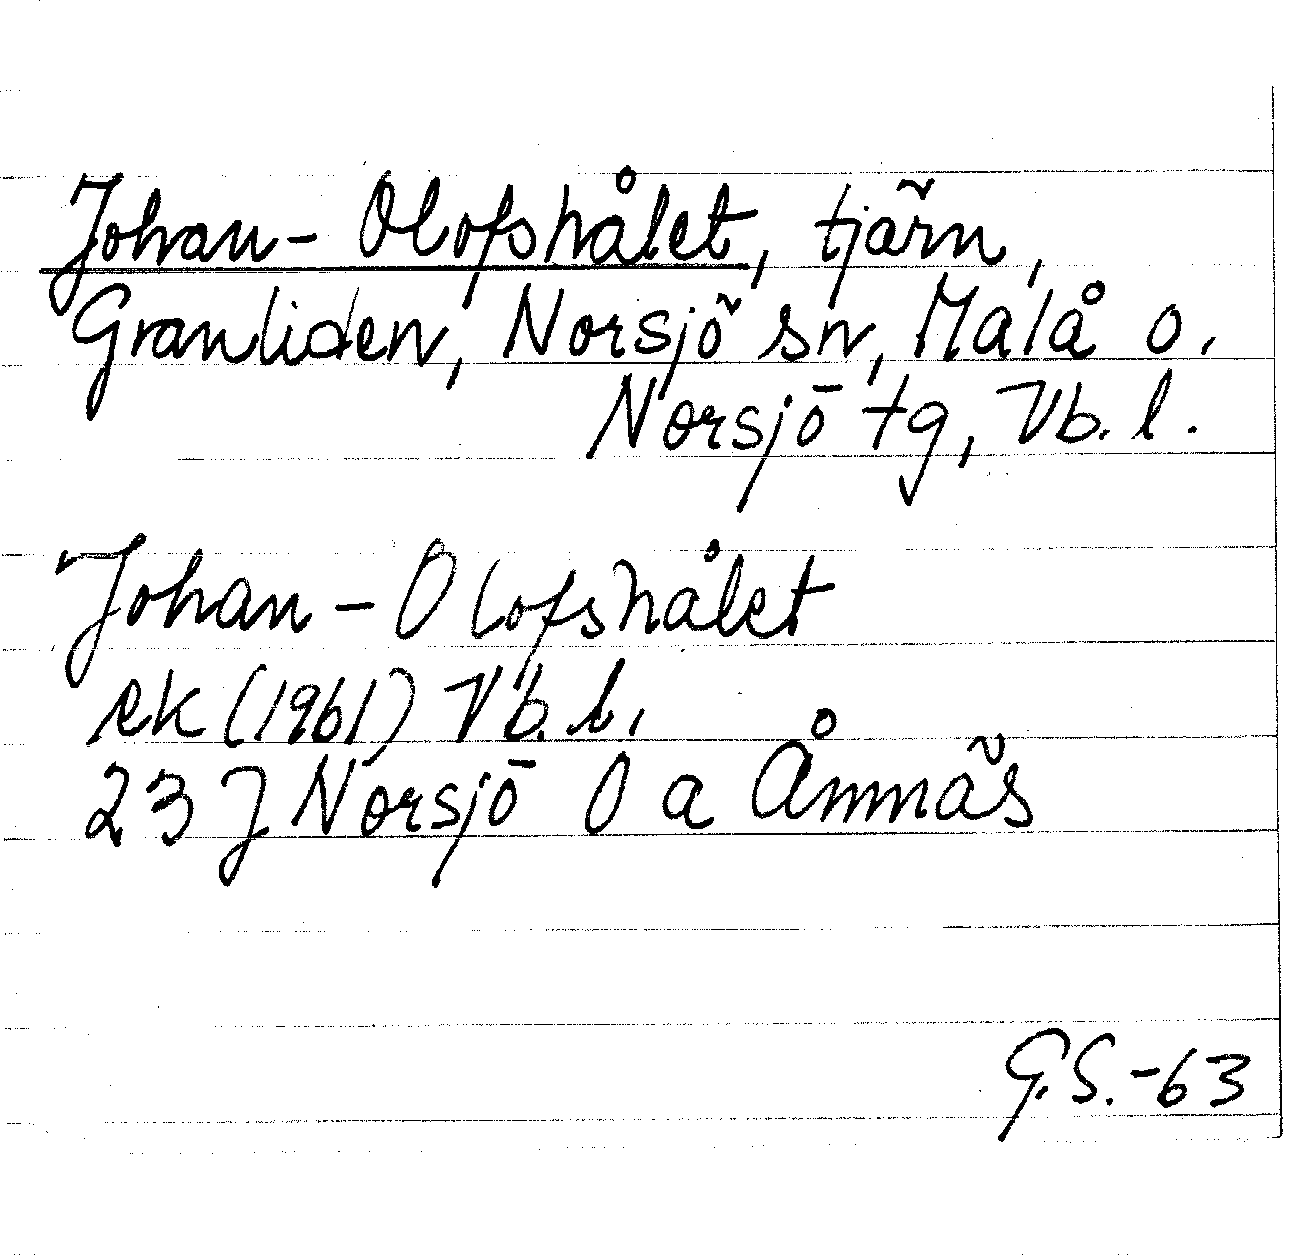 Johan-Olofshålet, tjärn,
Granliden, Norsjö sn, Malå o.
Norsjö tg, Vb. l.
Johan-Olofshålet
ek (1961) Vb. l.
23 J Norsjö 0 a Åmnäs
G.S.-63